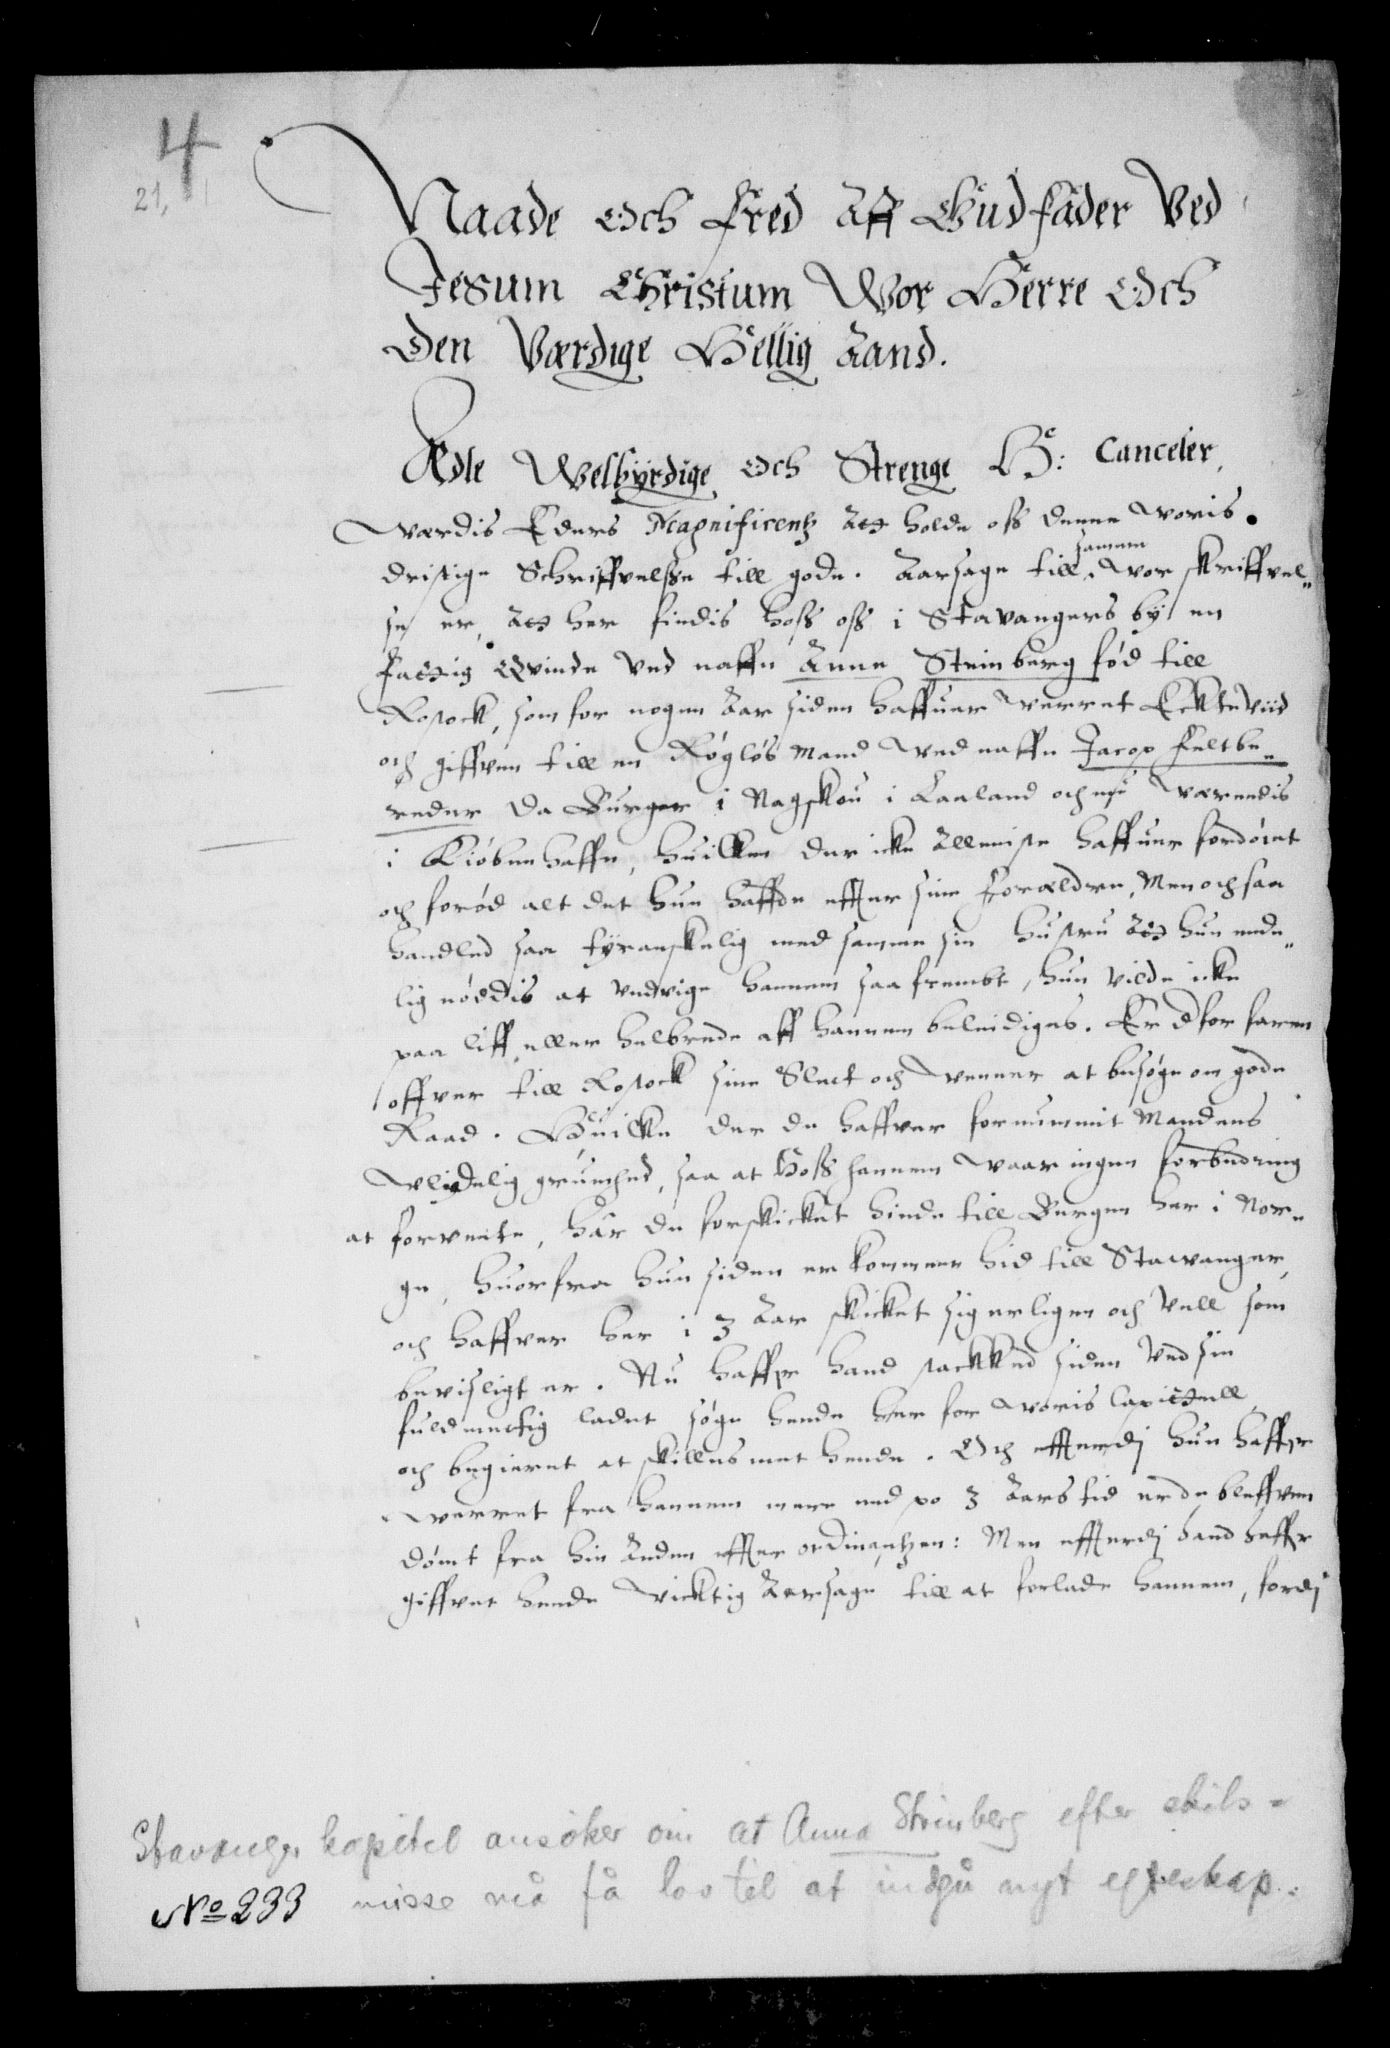 4
21,
Naade Och Fred Aff Gud fader Ved
Jesum Christum Wor Herre Och
Den Værdige Hellig Aand.
Ædle Welbyrdige Och Strenge H: Canceler,
værdis Eders Magnificentz Att holde oss denne woris
dristige Schriffvelsse till gode. Aarsage till samme wor skriffvel„
se er, Att her findis hoss oss i Stavangers by en
Fattig Qvinde Ved naffn Anne Steinberg fød till
Rostock, som for nogen Aar siden haffuer verret Eckteviid
och giffven till en Røgløs Mand Ved naffn Jacop Feltbe„
reder Da Burger i Nagskou i Laaland och nu værendis
i Kiøbenhaffn, huilken der icke Alleniste haffuer fordømt
och forød alt det hun haffde effter sine Forældre, Men och saa
handled saa tyranskelig med samme sin hustru Att hun ende„
lig nøddis at undvige hannem saa frembt, hun vilde icke
paa liff eller helbrede aff hannem beleidiges. Er d for faren
offver till Rostock sine Slect och venner at besøge om gode
Raad. Huilke der de haffver fornummit Mandens
wlidelig grumhed, saa at Hoss hannem waar ingen forbedring
at forvente, har de forskicket hinde till Bergen her i Nor„
ge, huorfra hun siden er kommen hid till Stawanger,
och haffver her i 3 Aar skicket sig erligen och vell som
bevisligt er. Nu haffr hand stackked siden Ved sin
fuldmectig ladet søge hende her for woris Capittell,
och begieret at skilles met hende. Och effterdj hun haffr
werret fra hannem mere end po 3 Aars tid er de bleffven
dømt fra hin Anden effter ordinantzen: Men effterdj hand haffr
giffvet hende Vicktig Aarsage till at forlade hannem, fordj
Stavanger kapitel ansøker om at Anna Steinberg efter skils=
No 233 misse må få lov til at indgå nyt ekteskap.